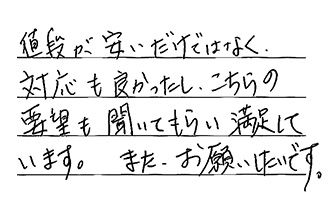 値段が安いだけではなく、
対応も良かったし、こちらの
要望も聞いてもらい満足して
います。また、お願いしたいです。